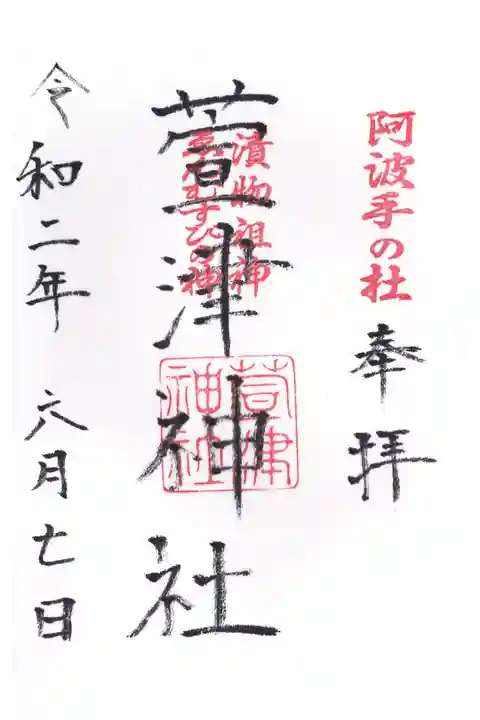 阿波手の杜
奉拝
漬物祖神
縁むすびの神
萱津神社
萱津
神社
令和二年 六月七日